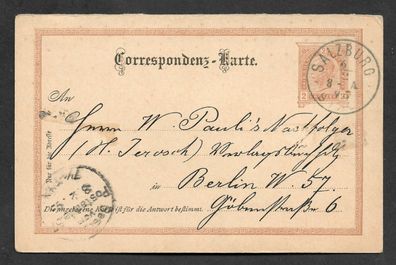 Correspondenz-Karte.
SALZBURG
2
An
Herrn W. Pauli's Nachfolger
(H. Jerosch) Verlagsbuchhdlg
in Berlin W. 57.
Die angebogene Karte ist für die Antwort bestimmt.
Göbenstraße 6
Nur für die Adresse